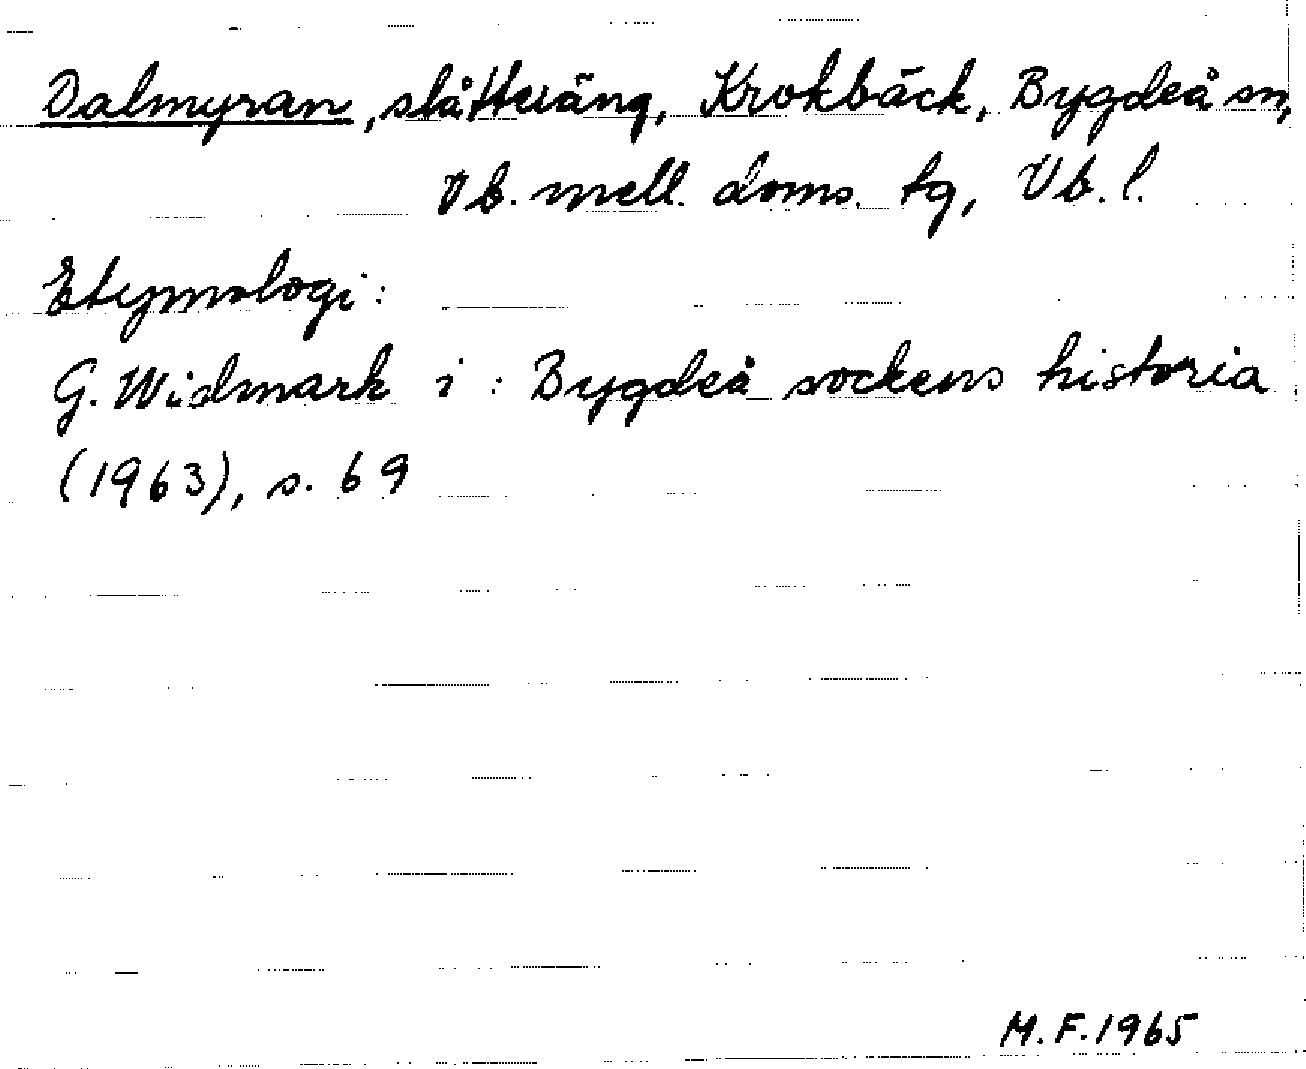 Dalmyran, slåtteräng, Krokbäck, Bygdeå sn,
Vb. mell. doms. tg, Vb. l.
Etymologi:
G. Widmark i : Bygdeå sockens historia
(1963), s. 69
M.F.1965